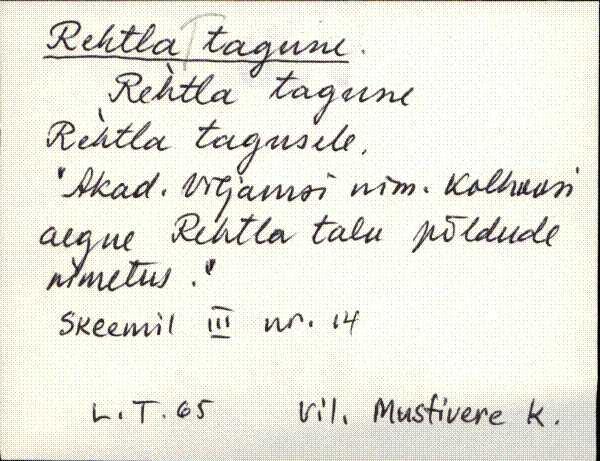 Rehtla tagune.
Reh̀tla tagune
Rèhtla tagusele.
"Akad. Viljamsi nim. kolhoosi
aegne Rehtla talu põldude
nimetus."
Skeemil III nr. 14
L.T. 65 Vil. Mustivere k.